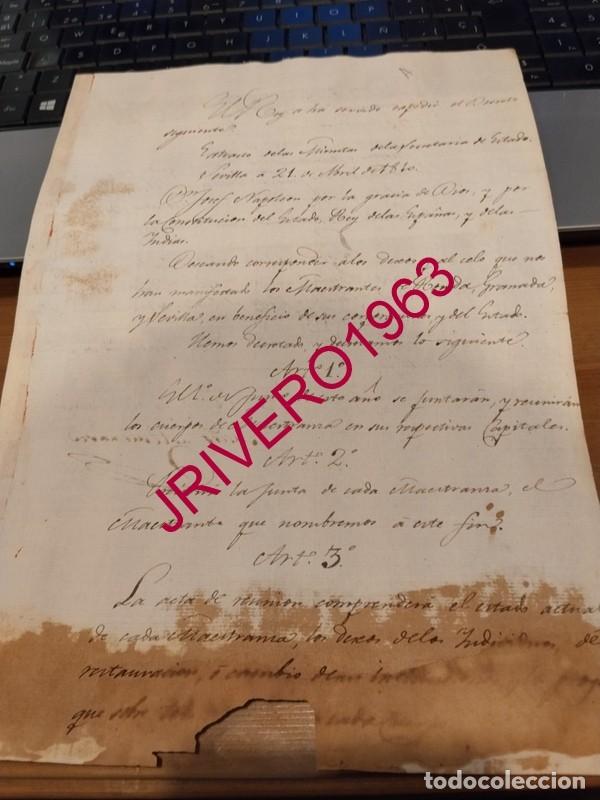 El Rey a ha servido expedir el Decreto
siguiente
Extracto de las Minutas de la Secretaria de Estado.
Sevilla á 21 de Abril de 1810.
Dn. Josef Napoleon por la gracia de Dios, y por
la Constitucion del Estado, Rey de las Españas, y de las
Indias.
Deseando corresponder á los deseos, y al celo que nos
han manifestado los Maestrantes Ronda, Granada,
y Sevilla, en beneficio de sus y del Estado.
Hemos decretado y decretamos lo siguiente
Arto. 1.º
El 1.º de Junio de este año se juntarán, y reunirán
los cuerpos de Maestranza en sus respectivas Capitales.
Arto. 2.º
la junta de cada Maestranza, el
Maestrante que nombremos á este fin.
Arto. 3.º
La acta de reunion comprenderá el estado actual
de cada Maestranza, los deseos de los Individuos, de
restauracion, ó cambio de su
que sobre
JRIVERO1963
todocoleccion